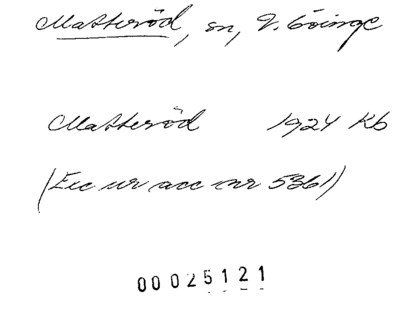 Matteröd, sn, V. Göinge
Matteröd 1924 Kb
(Exc ur acc nr 5361)
00025121